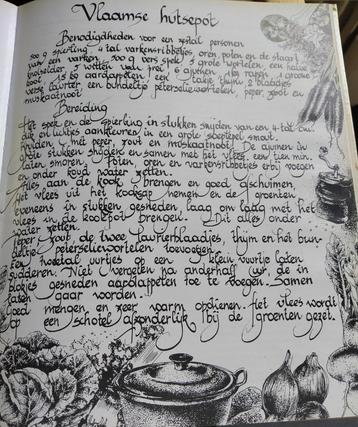 Vlaamse hutsepot
Benodigdheden voor een zestal personen
500 g spiering 4 tal varkensribbetjes oren, poten en de staart
van een varken 500 g vers spek 5 grote wortelen een halve
knolselder 5 witten van prei 6 ajuinen 150 rapen 1 groene
kool 15 kg aardappelen een takje thijm 2 blaadjes
verse laurier een bundeltje peterseliewortelen peper, zout en
muskaatnoot
Bereiding
Het spek en de spiering in stukken snijden van een 4-tal cm.
dik en lichtjes aankleuren in een grote soeplepel smout.
Kruiden met peper zout en muskaatnoot. De ajuinen in
grote stukken snijden en samen met het vlees een tien min.
laten smoren. Poten, oren en varkensribbetjes erbij voegen
en onder koud water zetten.
Alles aan de kook brengen en goed afschuimen.
Het vlees uit het kooksap nemen en de groenten
eveneens in stukken gesneden laag om laag met het
vlees in de kookpot brengen. Dit alles onder
water zetten.
Peper zout, de twee laurierblaadjes, thijm en het bun-
deltje peterseliewortelen toevoegen.
Een tweetal uurtjes op een klein vuurtje laten
sudderen. Niet vergeten na anderhalf uur, de in
blokjes gesneden aardappelen toe te voegen. Samen
laten gaar worden.
Goed mengen en zeer warm opdienen. Het vlees wordt
op een schotel afzonderlijk bij de groenten gezet.